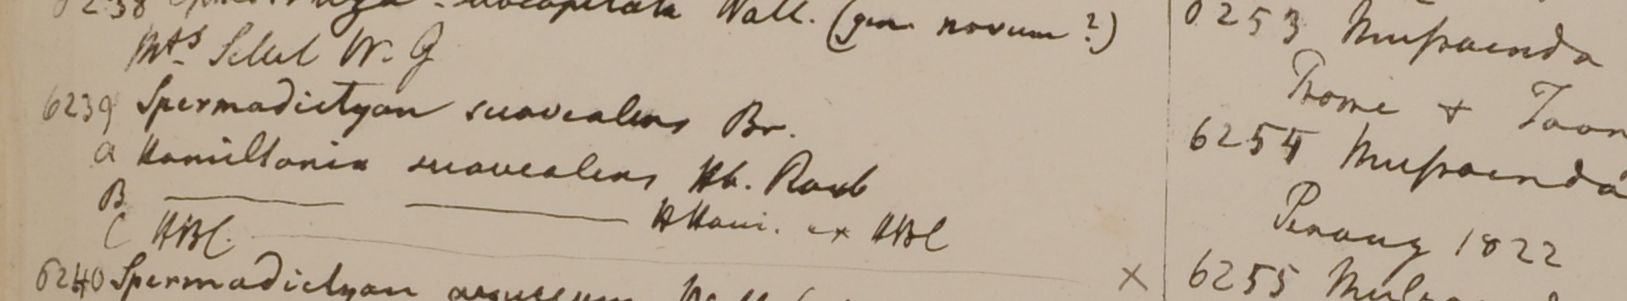 Wall. (gen novum?)
Mts Silet W. G
6239 Spermadictyon suaveolens Br.
a Hamiltonia suaveolens Hb. Roxb
B — — H Ham. ex HBC
C HBC.
6240 Spermadictyon
6253 Mussaenda
Prome +
6254 Mussaenda
Penang 1822
× 6255